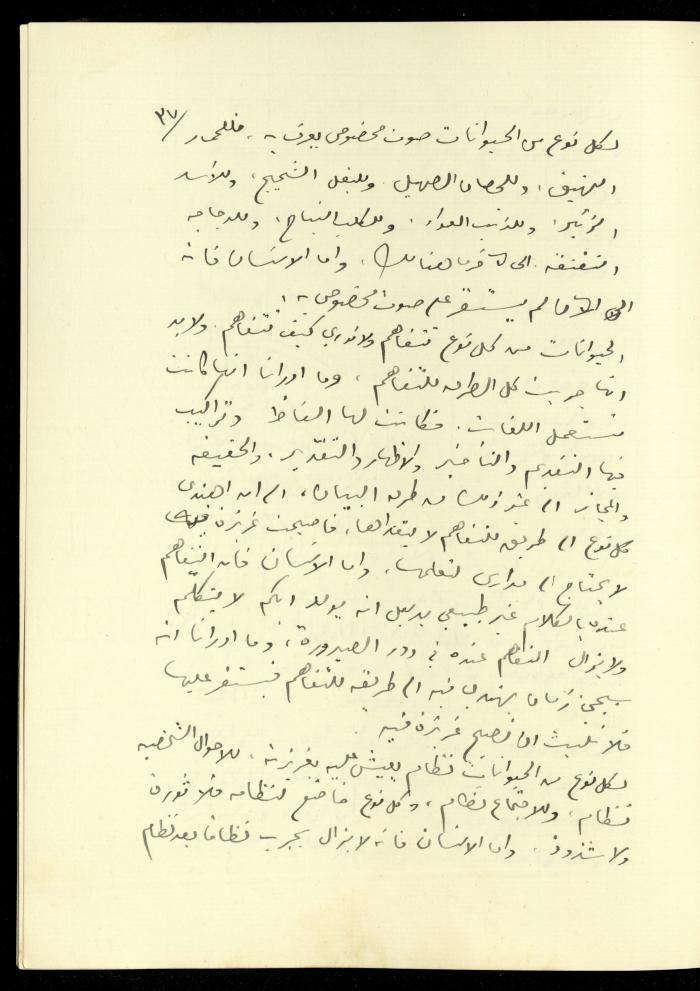 ٣٧/
لكل نوع من الحيوانات صوت مخصوص يعرف به، فللحمار
النهيق، وللحصان الصهيل، وللبغل الشحيج، وللأسد
الزئير، وللذئب العواء، وللكلب النباح، وللدجاجه
النقنقة، الى آخر ما هنالك، واما الانسان فانه
الى الآن لم يستقر على صوت مخصوص به،
الحيوانات من كل نوع تتفاهم ولا ندري كيف تتفاهم، ولا بد
انها جربت كل الطرق للتفاهم، وما ادرانا انها كانت
تستعمل اللغات، فكانت لها الفاظ وتراكيب
فيها التقديم والتأخير والاظهار والتقدير، والحقيقه
والمجاز الى غير ذلك من طرق البيان، الى ان اهتدى
كل نوع الى طريق للتفاهم لا يتعداها، فاصبحت غريزة فيه
لا يحتاج الى مدارس لتعلمها، واما الانسان فان التفاهم
عنده بالكلام غير طبيعي بدليل انه يولد ابكم لا يتكلم
ولا يزال التفاهم عنده في دور الصيرورة، وما ادرانا انه
سيجيء زمان يهتدي فيه الى طريقه للتفاهم فيستقر عليها
فلا تلبث ان تصبح غريزة فيه.
لكل نوع من الحيوانات نظام يعيش عليه بغريزته، للاحوال الشخصيه
نظام، وللاجتماع نظام، وكل نوع خاضع لنظامه فلا ثورة
ولا شذوذ، واما الانسان فانه لا يزال يجرب نظاما بعد نظام